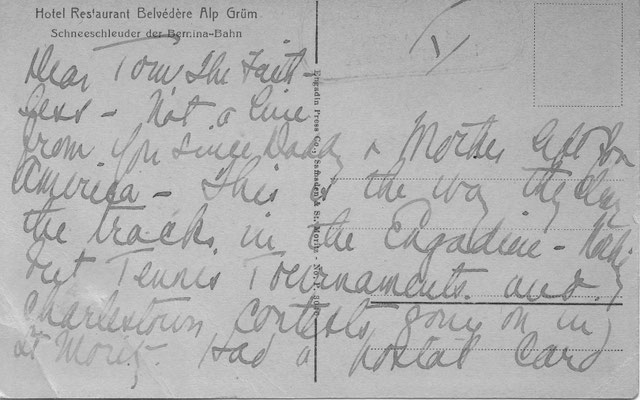 Hotel Restaurant Belvédère Alp Grüm
Schneeschleuder der Bernina-Bahn
Engadin Press Co., Samaden & St. Moritz - No. P.
Dear Tom the Faith-
less - Not a line
from you since Daddy & Mother left for
America - This is the way they clear
the tracks in the Engadine -
but Tennis Tournaments and
Charlestown contests going on in
St Moritz. Had a postal card